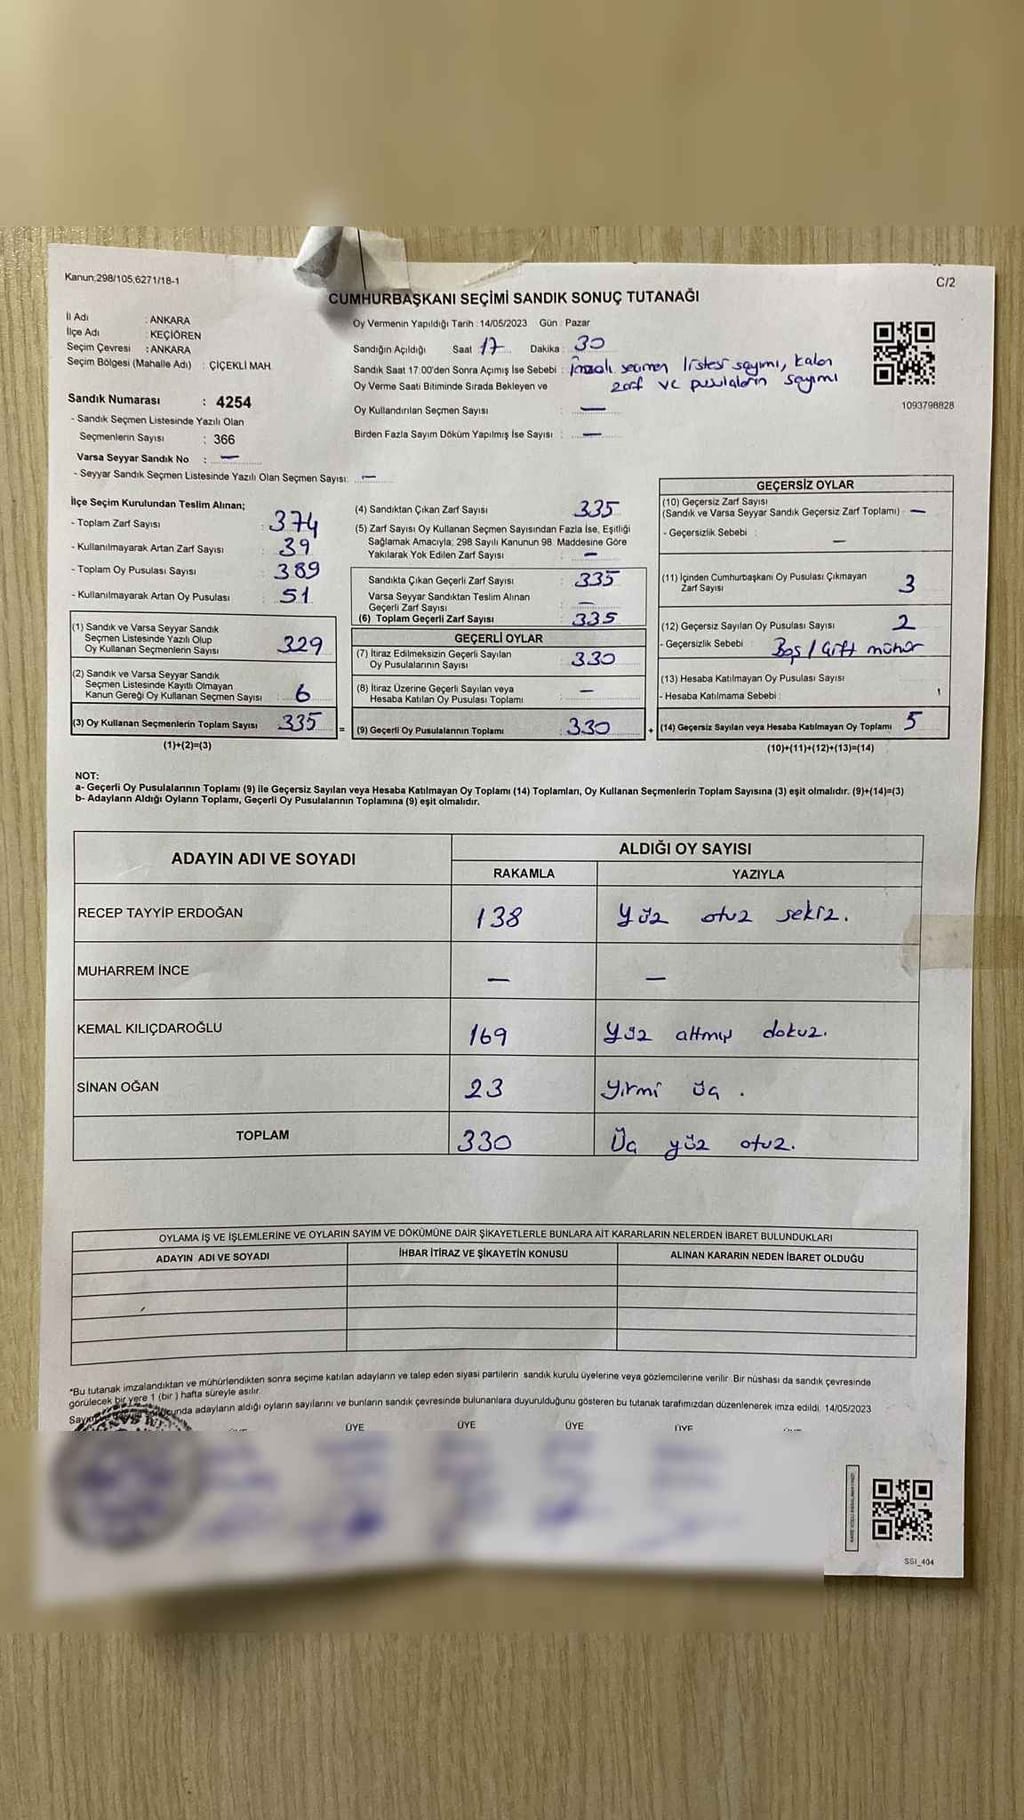 Kanun;298/105,6271/18-1
C/2
CUMHURBAŞKANI SEÇİMİ SANDIK SONUÇ TUTANAĞI
İl Adı : ANKARA
İlçe Adı : KEÇİÖREN
Seçim Çevresi : ANKARA
Seçim Bölgesi (Mahalle Adı) : ÇİÇEKLİ MAH
Sandık Numarası : 4254
- Sandık Seçmen Listesinde Yazılı Olan
Seçmenlerin Sayısı : 366
Varsa Seyyar Sandık No : —
- Seyyar Sandık Seçmen Listesinde Yazılı Olan Seçmen Sayısı: —
Oy Vermenin Yapıldığı Tarih : 14/05/2023 Gün : Pazar
Sandığın Açıldığı Saat 17 Dakika : 30
Sandık Saat 17:00'den Sonra Açımış İse Sebebi : İmzalı seçmen listesi sayımı, kalan
Oy Verme Saati Bitiminde Sırada Bekleyen ve zarf ve pusulaların sayımı
Oy Kullandırılan Seçmen Sayısı : —
Birden Fazla Sayım Döküm Yapılmış İse Sayısı : —
1093798828
İlçe Seçim Kurulundan Teslim Alınan;
- Toplam Zarf Sayısı : 374
- Kullanılmayarak Artan Zarf Sayısı : 39
- Toplam Oy Pusulası Sayısı : 389
- Kullanılmayarak Artan Oy Pusulası : 51
(1) Sandık ve Varsa Seyyar Sandık
Seçmen Listesinde Yazılı Olup
Oy Kullanan Seçmenlerin Sayısı : 329
(2) Sandık ve Varsa Seyyar Sandık
Seçmen Listesinde Kayıtlı Olmayan
Kanun Gereği Oy Kullanan Seçmen Sayısı : 6
(3) Oy Kullanan Seçmenlerin Toplam Sayısı : 335 =
(1)+(2)=(3)
(4) Sandıktan Çıkan Zarf Sayısı : 335
(5) Zarf Sayısı Oy Kullanan Seçmen Sayısından Fazla İse, Eşitliği
Sağlamak Amacıyla, 298 Sayılı Kanunun 98. Maddesine Göre
Yakılarak Yok Edilen Zarf Sayısı : —
Sandıkta Çıkan Geçerli Zarf Sayısı : 335
Varsa Seyyar Sandıktan Teslim Alınan
Geçerli Zarf Sayısı : —
(6) Toplam Geçerli Zarf Sayısı : 335
GEÇERLİ OYLAR
(7) İtiraz Edilmeksizin Geçerli Sayılan
Oy Pusulalarının Sayısı : 330
(8) İtiraz Üzerine Geçerli Sayılan veya
Hesaba Katılan Oy Pusulası Toplamı : —
(9) Geçerli Oy Pusulalarının Toplamı : 330 +
GEÇERSİZ OYLAR
(10) Geçersiz Zarf Sayısı
(Sandık ve Varsa Seyyar Sandık Geçersiz Zarf Toplamı) : —
- Geçersizlik Sebebi : —
(11) İçinden Cumhurbaşkanı Oy Pusulası Çıkmayan
Zarf Sayısı 3
(12) Geçersiz Sayılan Oy Pusulası Sayısı 2
- Geçersizlik Sebebi : Boş / Çift mühür
(13) Hesaba Katılmayan Oy Pusulası Sayısı
- Hesaba Katılmama Sebebi :
(14) Geçersiz Sayılan veya Hesaba Katılmayan Oy Toplamı : 5
(10)+(11)+(12)+(13)=(14)
NOT:
a- Geçerli Oy Pusulalarının Toplamı (9) ile Geçersiz Sayılan veya Hesaba Katılmayan Oy Toplamı (14) Toplamları, Oy Kullanan Seçmenlerin Toplam Sayısına (3) eşit olmalıdır. (9)+(14)=(3)
b- Adayların Aldığı Oyların Toplamı, Geçerli Oy Pusulalarının Toplamına (9) eşit olmalıdır.
ADAYIN ADI VE SOYADI ALDIĞI OY SAYISI
RAKAMLA YAZIYLA
RECEP TAYYİP ERDOĞAN 138 yüz otuz sekiz.
MUHARREM İNCE — —
KEMAL KILIÇDAROĞLU 169 yüz altmış dokuz.
SİNAN OĞAN 23 yirmi üç .
TOPLAM 330 Üç yüz otuz.
OYLAMA İŞ VE İŞLEMLERİNE VE OYLARIN SAYIM VE DÖKÜMÜNE DAİR ŞİKAYETLERLE BUNLARA AİT KARARLARIN NELERDEN İBARET BULUNDUKLARI
ADAYIN ADI VE SOYADI İHBAR İTİRAZ VE ŞİKAYETİN KONUSU ALINAN KARARIN NEDEN İBARET OLDUĞU
*Bu tutanak imzalandıktan ve mühürlendikten sonra seçime katılan adayların ve talep eden siyasi partilerin sandık kurulu üyelerine veya gözlemcilerine verilir. Bir nüshası da sandık çevresinde
görülecek bir yere 1 (bir ) hafta süreyle asılır.
adayların aldığı oyların sayılarını ve bunların sandık çevresinde bulunanlara duyurulduğunu gösteren bu tutanak tarafımızdan düzenlenerek imza edildi. 14/05/2023
ÜYE ÜYE ÜYE ÜYE
SSI_404